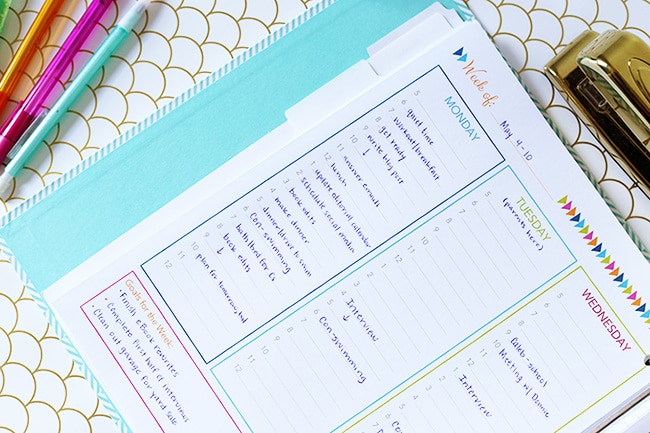 Week of: May 4-10
MONDAY
5
6 quiet time
7 workout/breakfast
8 get ready
9 write blog post
10 ↓
11 answer emails
12 lunch
1 update editorial calendar
2 schedule social media
3 book edits
4 make dinner
5 dinner/drive to swim
6 Con-swimming
7 bath/bed for
8 book edits
9 ↓
10 plan for tomorrow, bed
11
12
TUESDAY
(parents here)
5
6
7
8
9
10
11
12
1
2
3
4 Interview
5 ↓
6 Con-swimming
7
8
9
10
11
12
WEDNESDAY
5
6
7
8
9 Caleb-school
10 Meeting w/ Donnie
11
12
1 Interview
2
3
4
Con-
Goals for the Week:
• Finish eBook rewrites
• Complete first half of interviews
• Clean out garage for yard sale